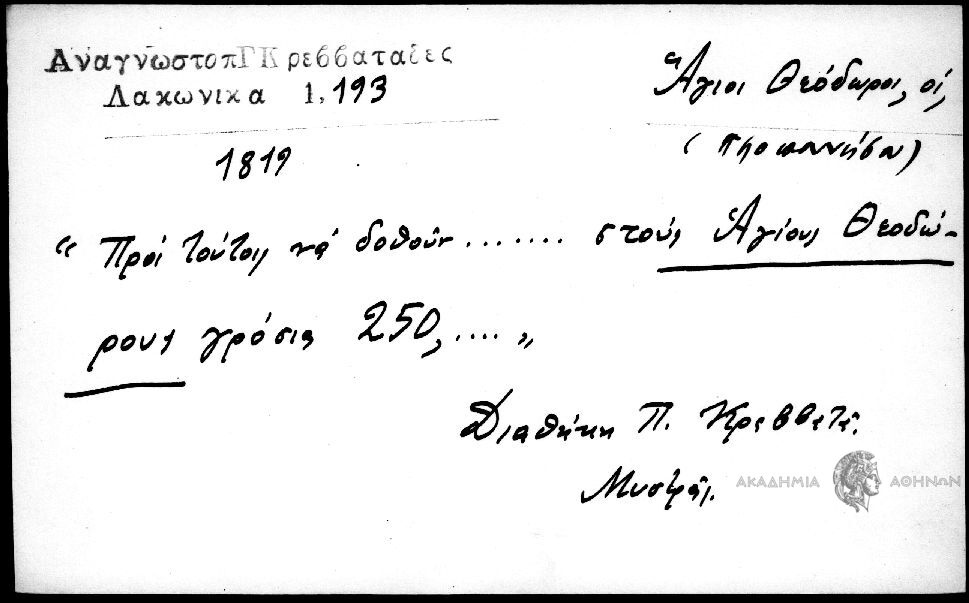 ΑναγνωστοπΓΚρεββαταδες
Λακωνικα 1,193
Ἅγιοι Θεόδωροι, οἱ,
1819
“ Πρὸς τούτοις νά δοθοῦν ....... στούς Ἁγίους Θεοδώ-
ρους γρόσια 250, .... „
Διαθήκη Π. Κρεββατᾶ.
Μυστρᾶς.
ΑΚΑΔΗΜΙΑ ΑΘΗΝΩΝ